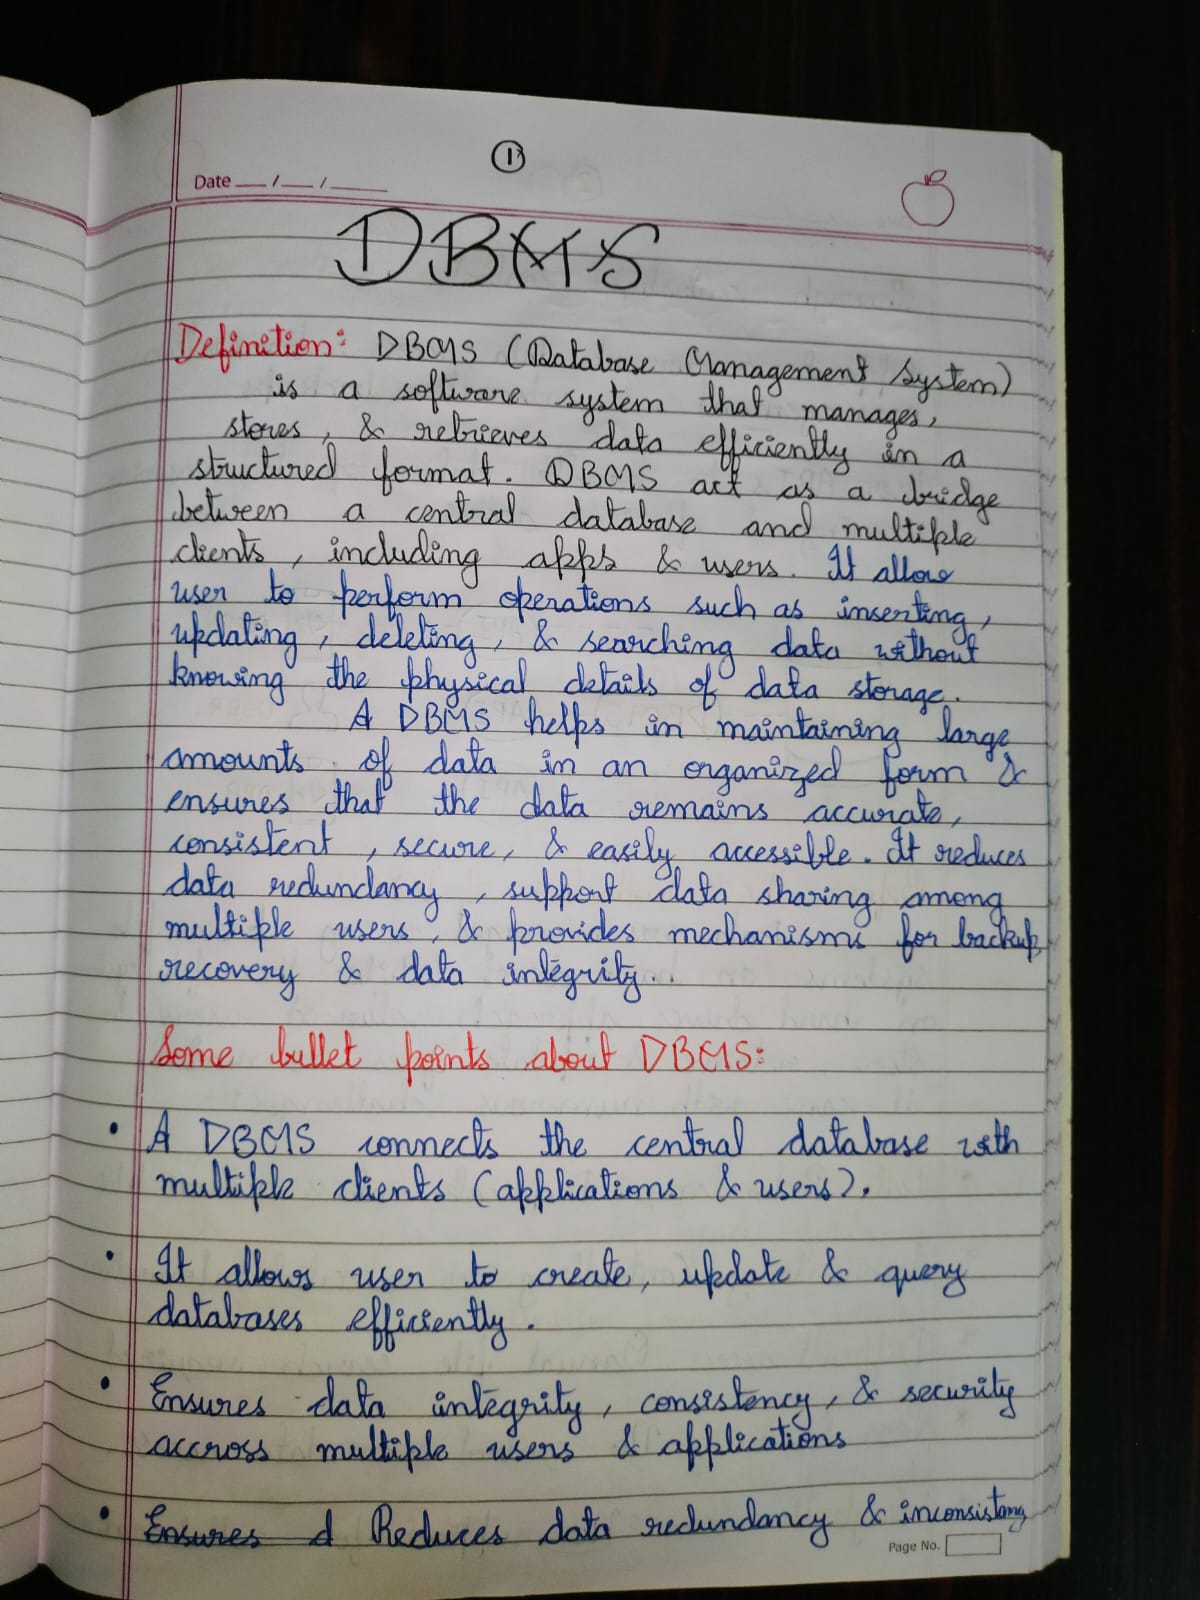 ①
Date __/__/____
DBMS
Definition: DBMS (Database Management System)
is a software system that manages,
stores, & retrieves data efficiently in a
structured format. DBMS act as a bridge
between a central database and multiple
clients, including apps & users. It allow
user to perform operations such as inserting,
updating, deleting, & searching data without
knowing the physical details of data storage.
A DBMS helps in maintaining large
amounts of data in an organized form &
ensures that the data remains accurate,
consistent, secure, & easily accessible. It reduces
data redundancy, support data sharing among
multiple users, & provides mechanisms for backup,
recovery & data integrity..
Some bullet points about DBMS:
• A DBMS connects the central database with
multiple clients (applications & users).
• It allows user to create, update & query
databases efficiently.
• Ensures data integrity, consistency, & security
accross multiple users & applications
• Ensures d Reduces data redundancy & inconsistany
Page No.